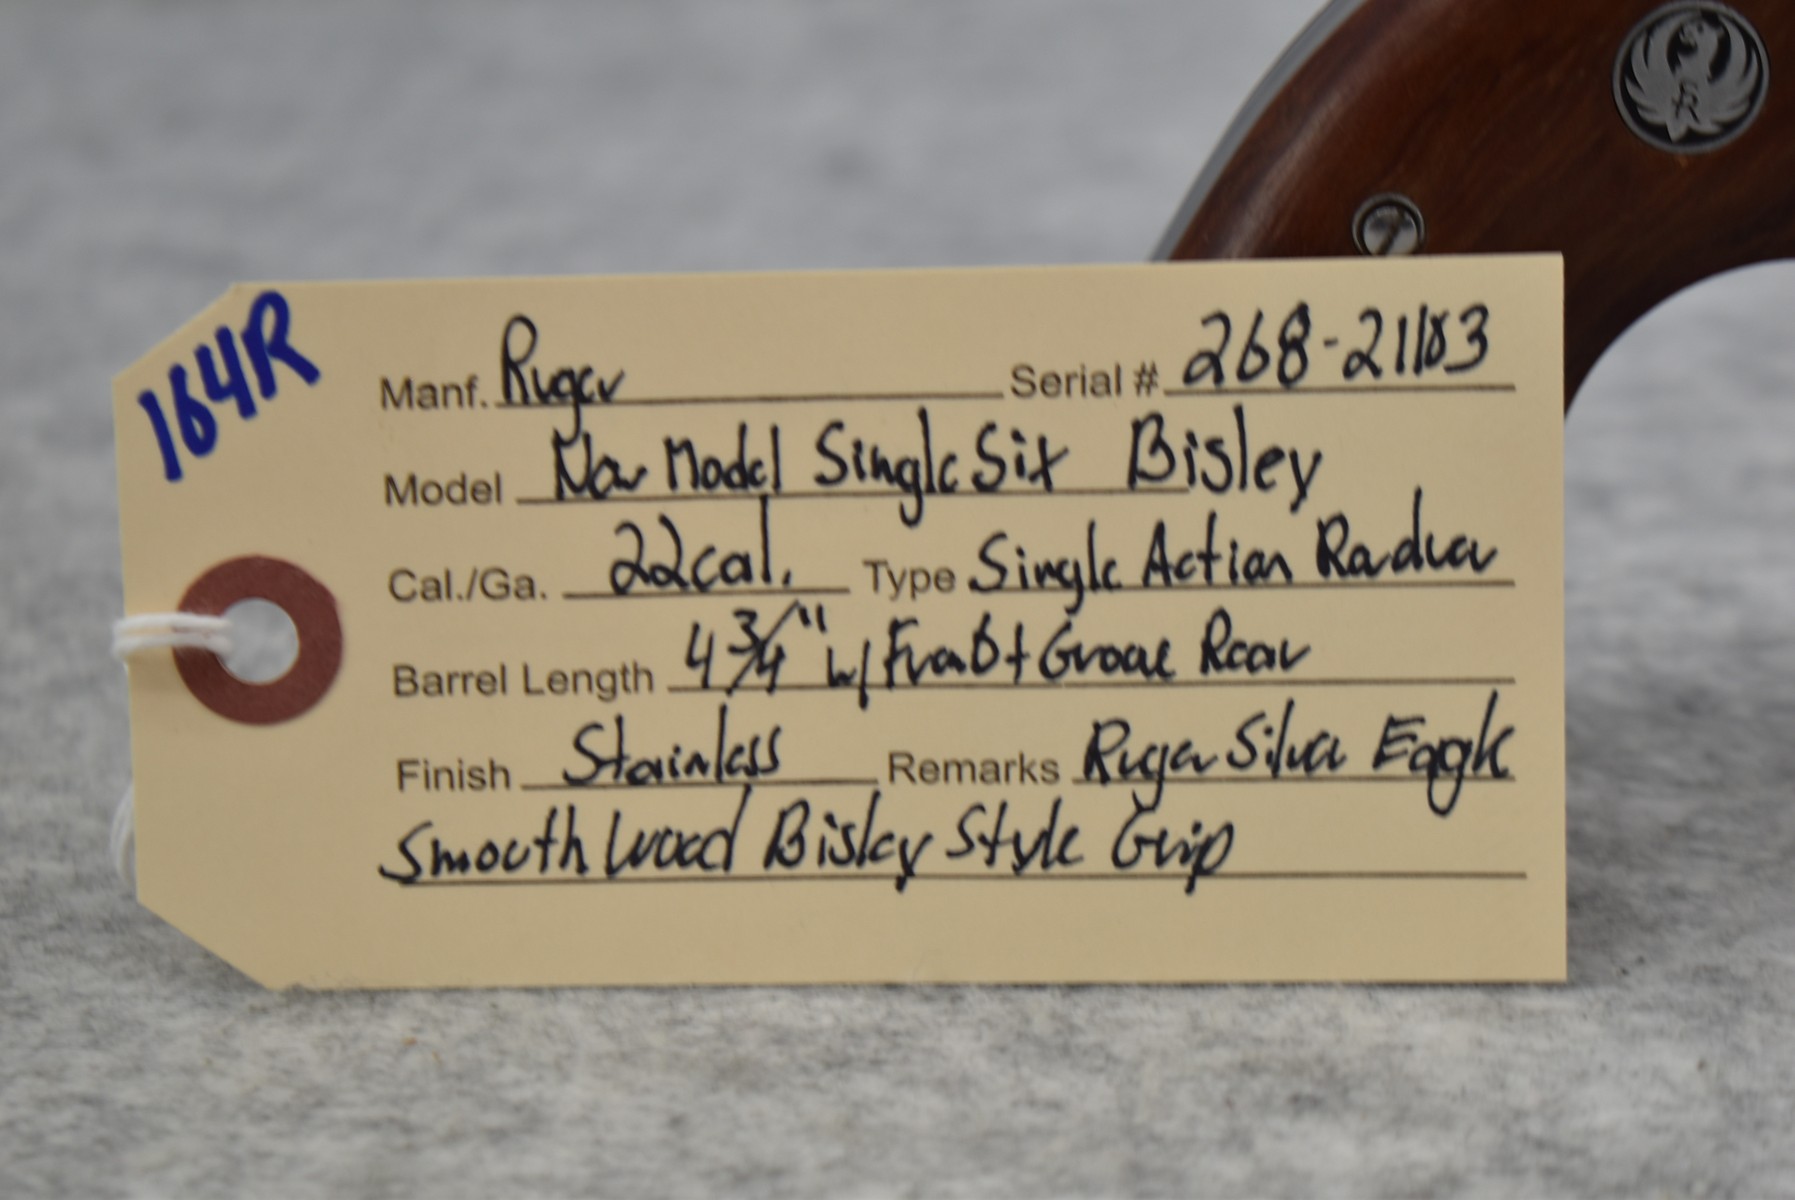 164R
Manf. Ruger Serial # 268-21183
Model New Model Single Six Bisley
Cal./Ga. 22cal. Type Single Action Revolver
Barrel Length 4 3/4" w/ Front Groove Rear
Finish Stainless Remarks Ruger Silver Eagle
Smooth Wood Bisley Style Grip